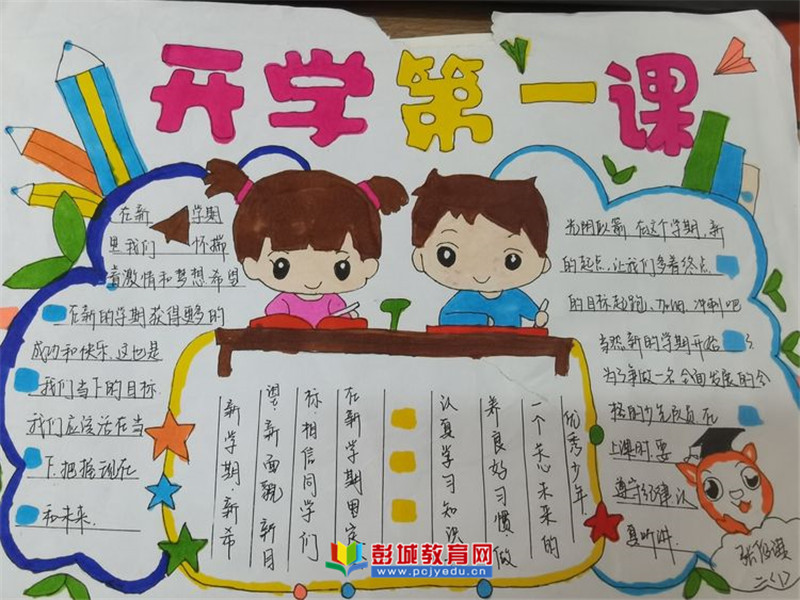 开学第一课
在新 学期
里我们 怀揣
着激情和梦想希望
在新的学期获得更多的
成功和快乐.这也是
我们当下的目标.
我们应该活在当
下.把握现在
和未来.
新学期.新希
望.新面貌新目
标.相信同学们
在新学期里定
认真学习知识
养良好习惯.做
一个关心未来的
优秀少年.
在这个学期.新
的起点.让我们争着终点
的目标起跑.加油.冲刺吧
当然新的学期开始
为了争做一名全面发展的合
格的少先队员在
上课时.要
遵守纪律认
真听讲.
二(1)
彭城教育网
www.pcjyedu.cn